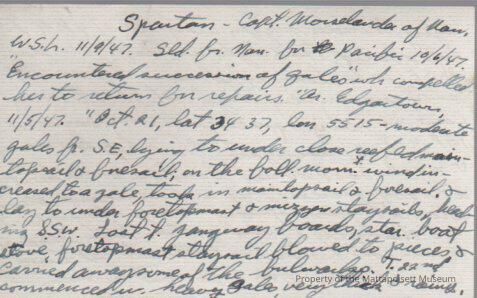 Spartan - Capt. Mouselander of Nan.
W.S.L. 11/9/47. Sld. fr. Nan. for Pacific 10/6/47.
"Encountered succession of gales" wh compelled
her to return for repairs. "Ar. Edgartown,
11/5/47. "Oct. 21, lat 34 37, lon 55 15 - moderate
gales fr. S.E, lying to under close reefed main-
topsail & foresail; on the foll. morn'g wind in-
creased to a gale, took in maintopsail & foresail, &
lay to under foretopmast & mizzen staysails, head-
ing SSW. Lost t. gangway boards, star. boat
stove, foretopmast staysail blowed to pieces, &
carried away some of the bulwarks. T. 22nd
commenced w heavy gales, very
Property of the Mattapoisett Museum